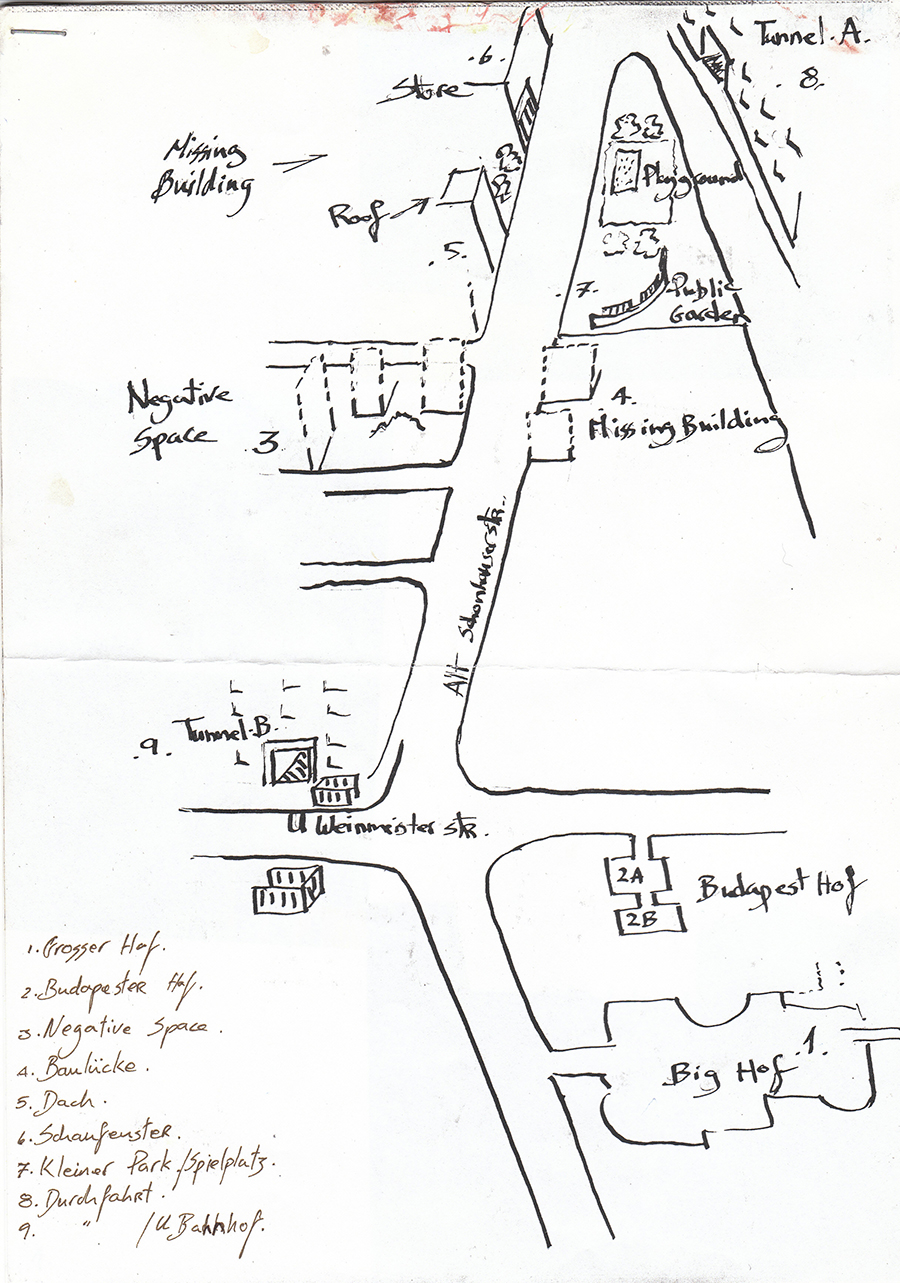 Tunnel.A.
.6.
8.
Store
Missing
Building
Playground
Roof
.5.
.7.
Public
Garden
Negative
Space
.3.
4.
Missing Building
Alt Schonhauserstr.
Tunnel.B.
.9.
U Weinmeister str.
2A
2B
Budapest Hof
Big Hof .1.
1. Grosser Hof.
2. Budapester Hof.
3. Negative Space.
4. Baulücke.
5. Dach.
6. Schaufenster.
7. Kleiner Park /Spielplatz.
8. Durchfahrt.
9. " /U Bahnhof.